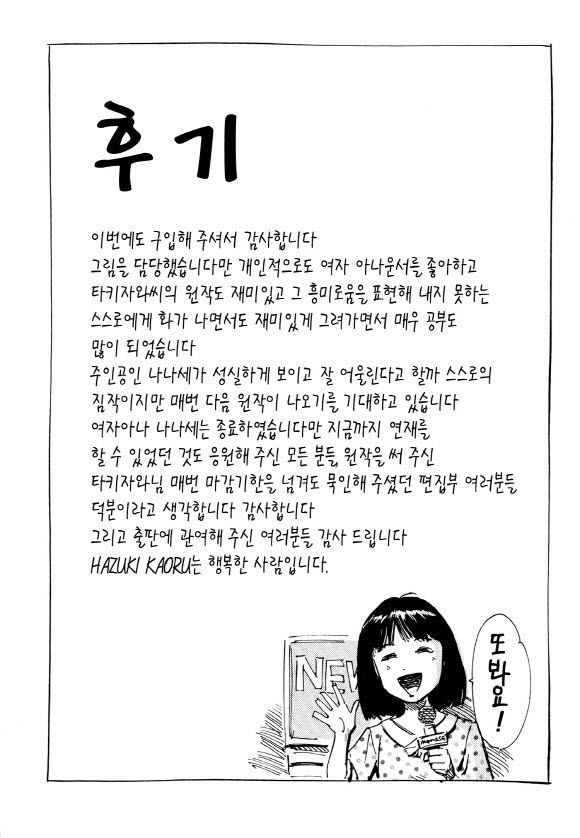 후기
이번에도 구입해 주셔서 감사합니다
그림을 담당했습니다만 개인적으로도 여자 아나운서를 좋아하고
타키자와씨의 원작도 재미있고 그 흥미로움을 표현해 내지 못하는
스스로에게 화가 나면서도 재미있게 그려가면서 매우 공부도
많이 되었습니다
주인공인 나나세가 성실하게 보이고 잘 어울린다고 할까 스스로의
짐작이지만 매번 다음 원작이 나오기를 기대하고 있습니다
여자아나 나나세는 종료하였습니다만 지금까지 연재를
할 수 있었던 것도 응원해 주신 모든 분들, 원작을 써 주신
타키자와님 매번 마감기한을 넘겨도 묵인해 주셨던 편집부 여러분들
덕분이라고 생각합니다 감사합니다
그리고 출판에 관여해 주신 여러분들 감사 드립니다
HAZUKI KAORU는 행복한 사람입니다.
NEW
또
봐요!